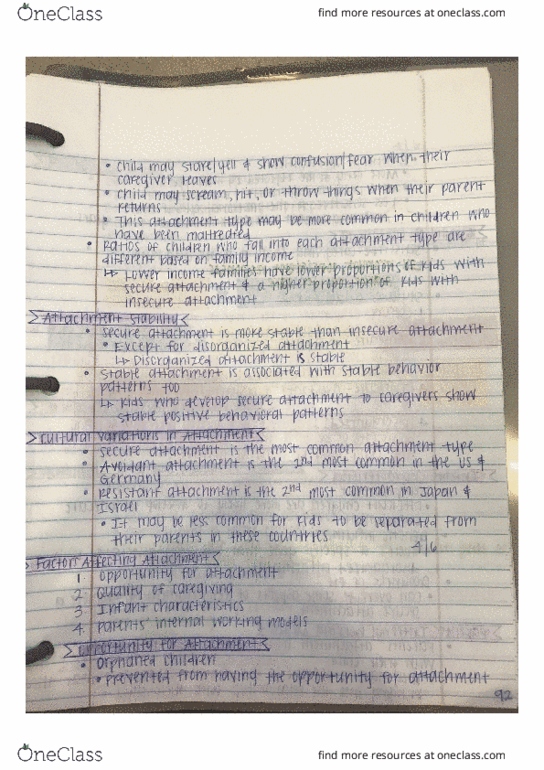 OneClass
find more resources at oneclass.com
• child may stare/yell & show confusion/fear when their
caregiver leaves
• child may scream, hit, or throw things when their parent
returns
• This attachment type may be more common in children who
have been maltreated
• Ratios of children who fall into each attachment type are
different based on family income
↳ Lower income families have lower proportions of kids with
secure attachment & a higher proportion of kids with
insecure attachment
Attachment Stability
• secure attachment is more stable than insecure attachment
• Except for disorganized attachment
↳ Disorganized attachment is stable
• stable attachment is associated with stable behavior
patterns too
↳ kids who develop secure attachment to caregivers show
stable positive behavioral patterns
Cultural Variations in Attachment
• secure attachment is the most common attachment type
• Avoidant attachment is the 2nd most common in the US &
Germany
• Resistant attachment is the 2nd most common in Japan &
Israel
• It may be less common for kids to be separated from
their parents in these countries
4/6
Factors Affecting Attachment
1 opportunity for attachment
2 Quality of caregiving
3 Infant characteristics
4 Parents' internal working models
Opportunity for Attachment
• orphaned children
• prevented from having the opportunity for attachment
92
OneClass
find more resources at oneclass.com